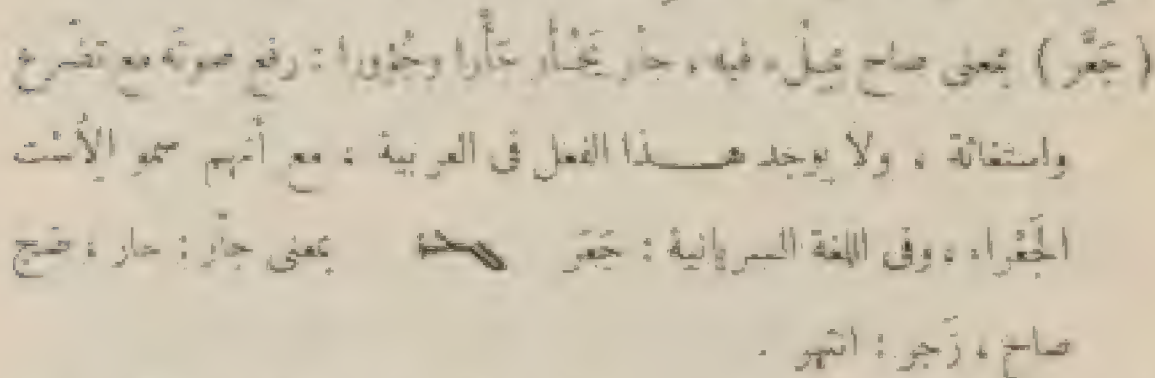 ( جَعَّر ) بمعنى صاح بملء فيه ، جأر يَجْأَر جَأْرا وجُؤورا : رفع صوته مع تضرع
واستغاثة ، ولا يوجد هـذا الفعل فى العربية ، مع أنهم سمو الأست
الجَعْراء ، وفى اللغة السريانية : جَعَر بمعنى جأر : خار ، ضج
صاح ، زَجر : انتهر .